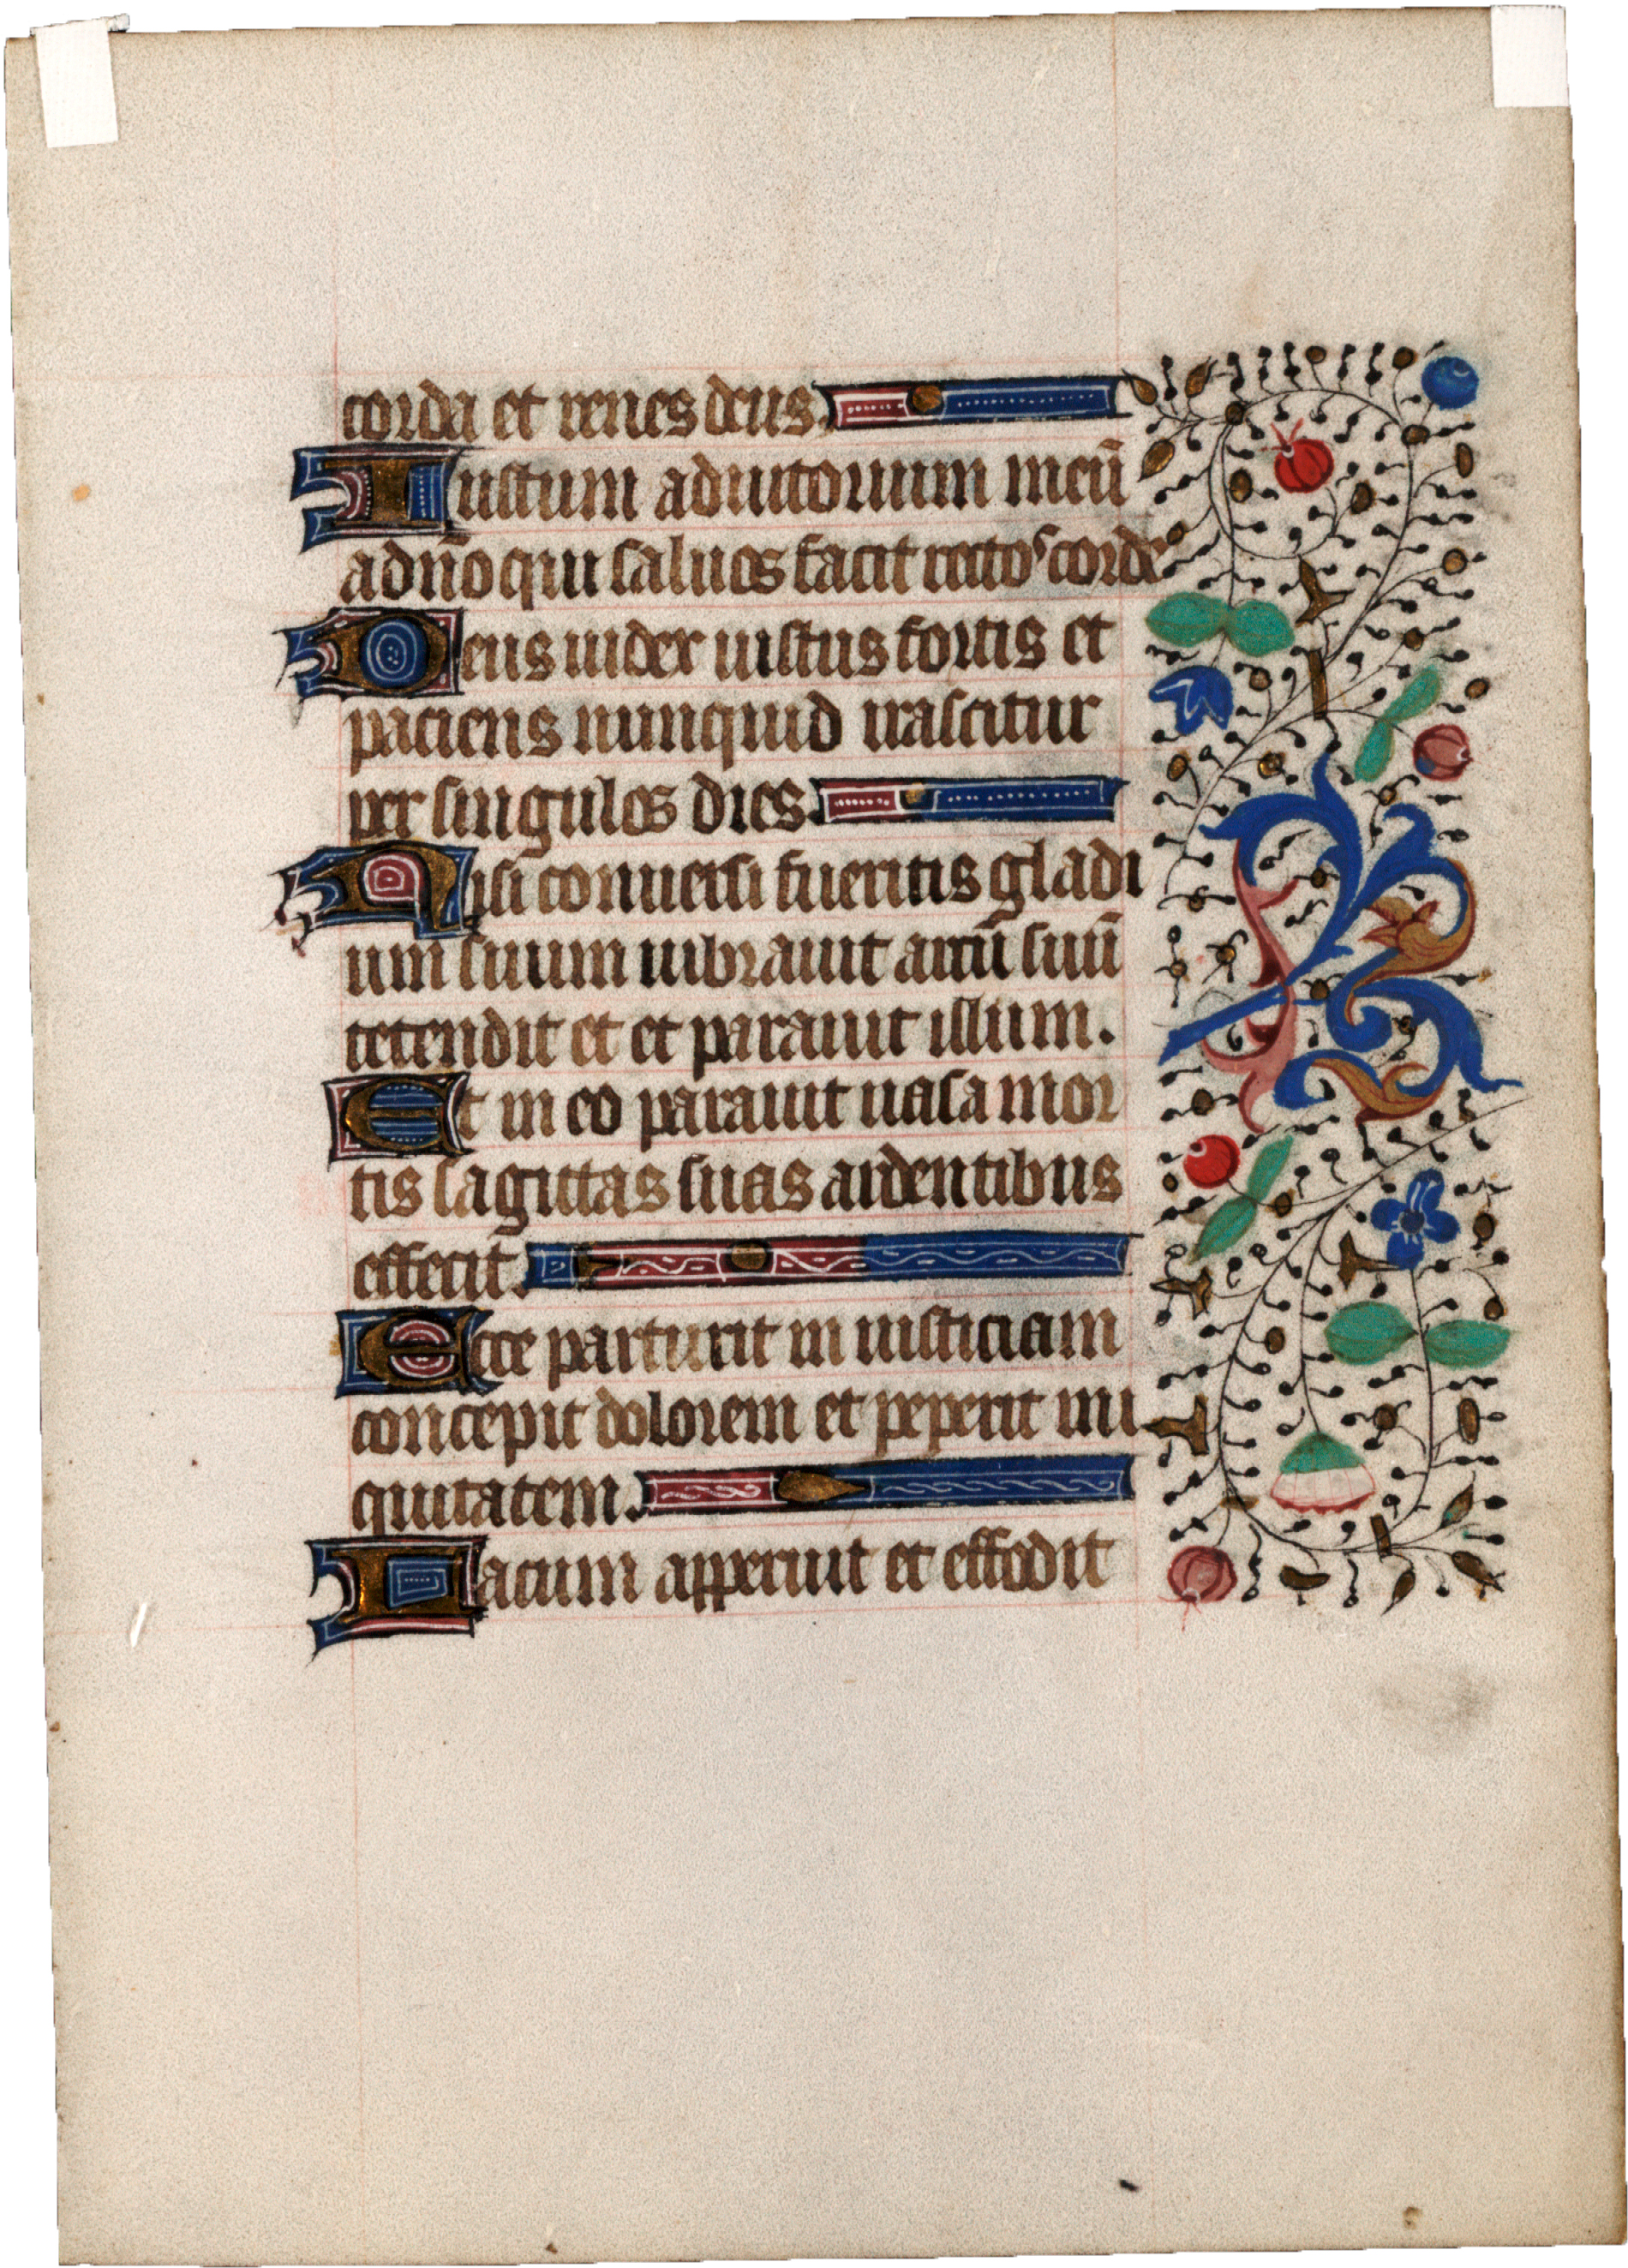 corda et renes deus.
Iustum adiutorium meū
adn̄o qui saluos facit rectos corde
Deus iudex iustus fortis et
paciens nunquid irascitur
per singulos dies.
Nisi conuersi fueritis gladi
um suum uibrauit arcū suū
tetendit et et parauit illum.
Et in eo parauit uasa mor
tis sagittas suas ardentibus
effecit.
Ecce parturit in iusticiam
concepit dolorem et peperit ini
quitatem.
Lacum apperuit et effodit